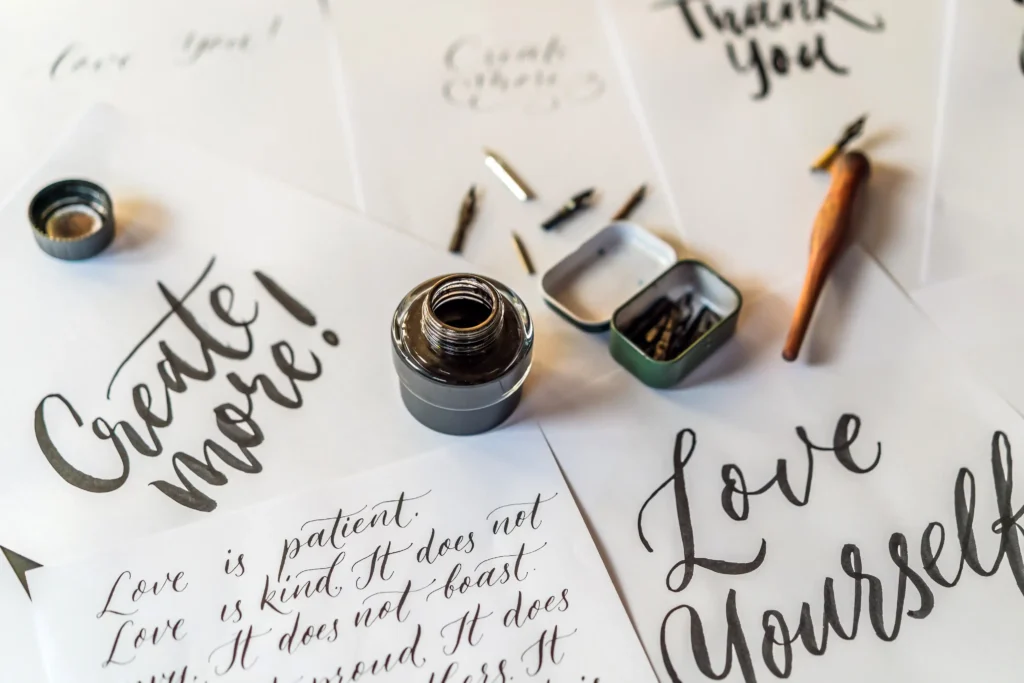 Love you!
Create
more
Thank
You
Create
more!
Love is patient.
Love is kind. It does not
It does not boast.
proud. It does
It
Love
Yourself